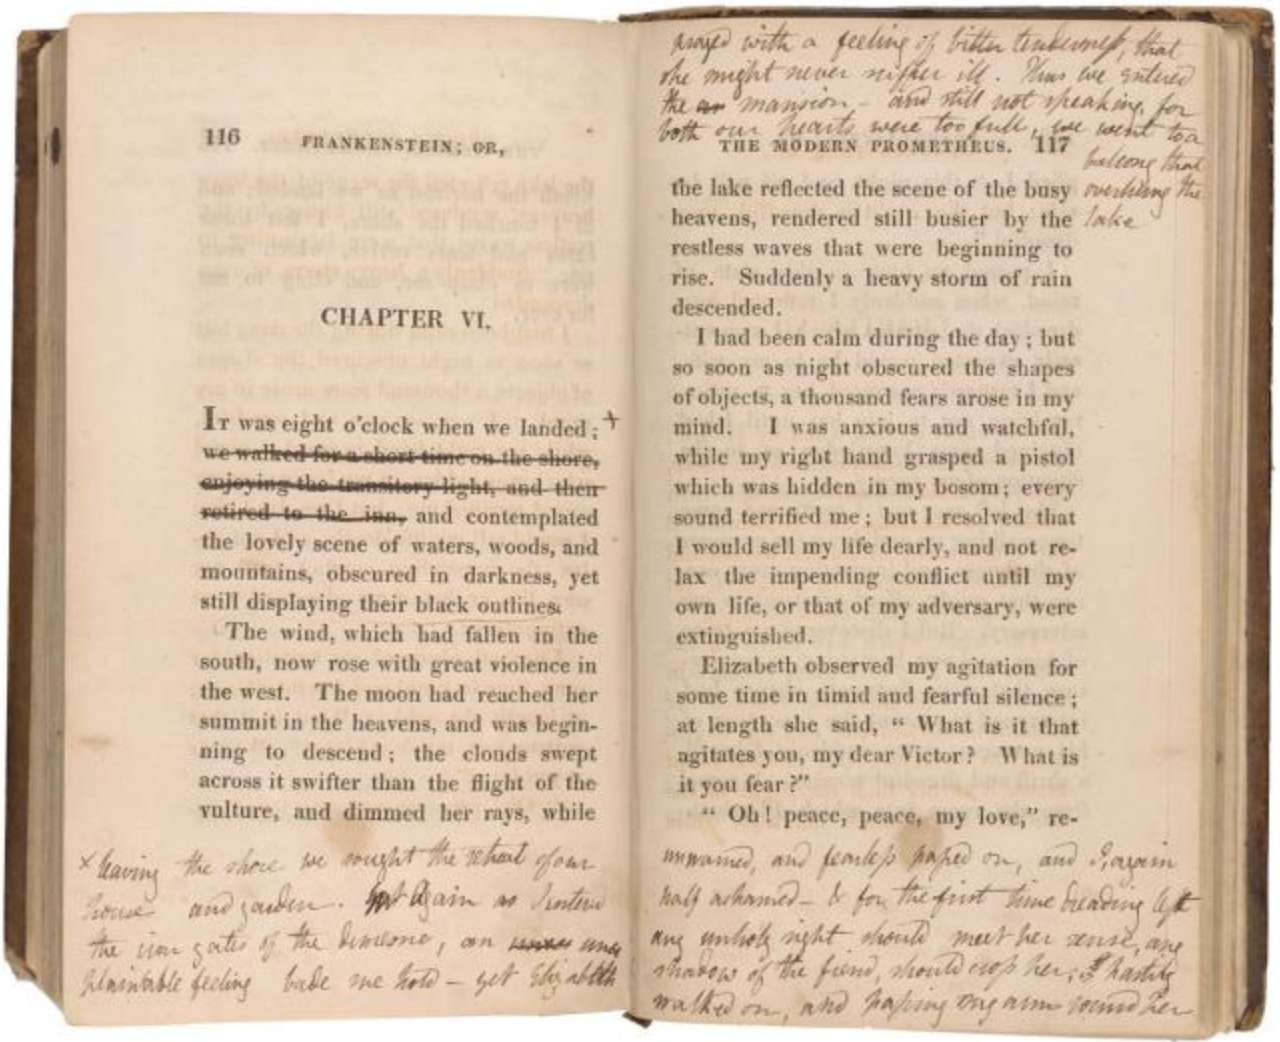 116 FRANKENSTEIN; OR,
CHAPTER VI.
IT was eight o'clock when we landed; +
we walked for a short time on the shore,
enjoying the transitory light, and then
retired to the inn, and contemplated
the lovely scene of waters, woods, and
mountains, obscured in darkness, yet
still displaying their black outlines.
The wind, which had fallen in the
south, now rose with great violence in
the west. The moon had reached her
summit in the heavens, and was begin-
ning to descend; the clouds swept
across it swifter than the flight of the
vulture, and dimmed her rays, while
x leaving the shore we sought the retreat of our
house and garden. Again as I entered
the iron gates of the demesne, an
feeling bade me hold – yet Elizabeth
prayed with a feeling of bitter tenderness, that
she might never suffer ill. Thus we entered
the mansion – and still not speaking, for
both our hearts were too full, we went to a
balcony that
overhung the
lake
THE MODERN PROMETHEUS. 117
the lake reflected the scene of the busy
heavens, rendered still busier by the
restless waves that were beginning to
rise. Suddenly a heavy storm of rain
descended.
I had been calm during the day; but
so soon as night obscured the shapes
of objects, a thousand fears arose in my
mind. I was anxious and watchful,
while my right hand grasped a pistol
which was hidden in my bosom; every
sound terrified me; but I resolved that
I would sell my life dearly, and not re-
lax the impending conflict until my
own life, or that of my adversary, were
extinguished.
Elizabeth observed my agitation for
some time in timid and fearful silence;
at length she said, "What is it that
agitates you, my dear Victor? What is
it you fear?"
"Oh! peace, peace, my love," re-
unwarned, and fearless passed on, and I, again
half ashamed – & for the first time dreading lest
any unholy sight should meet her sense, any
shadow of the fiend, should cross her, I hastily
walked on, and passing my arm round her